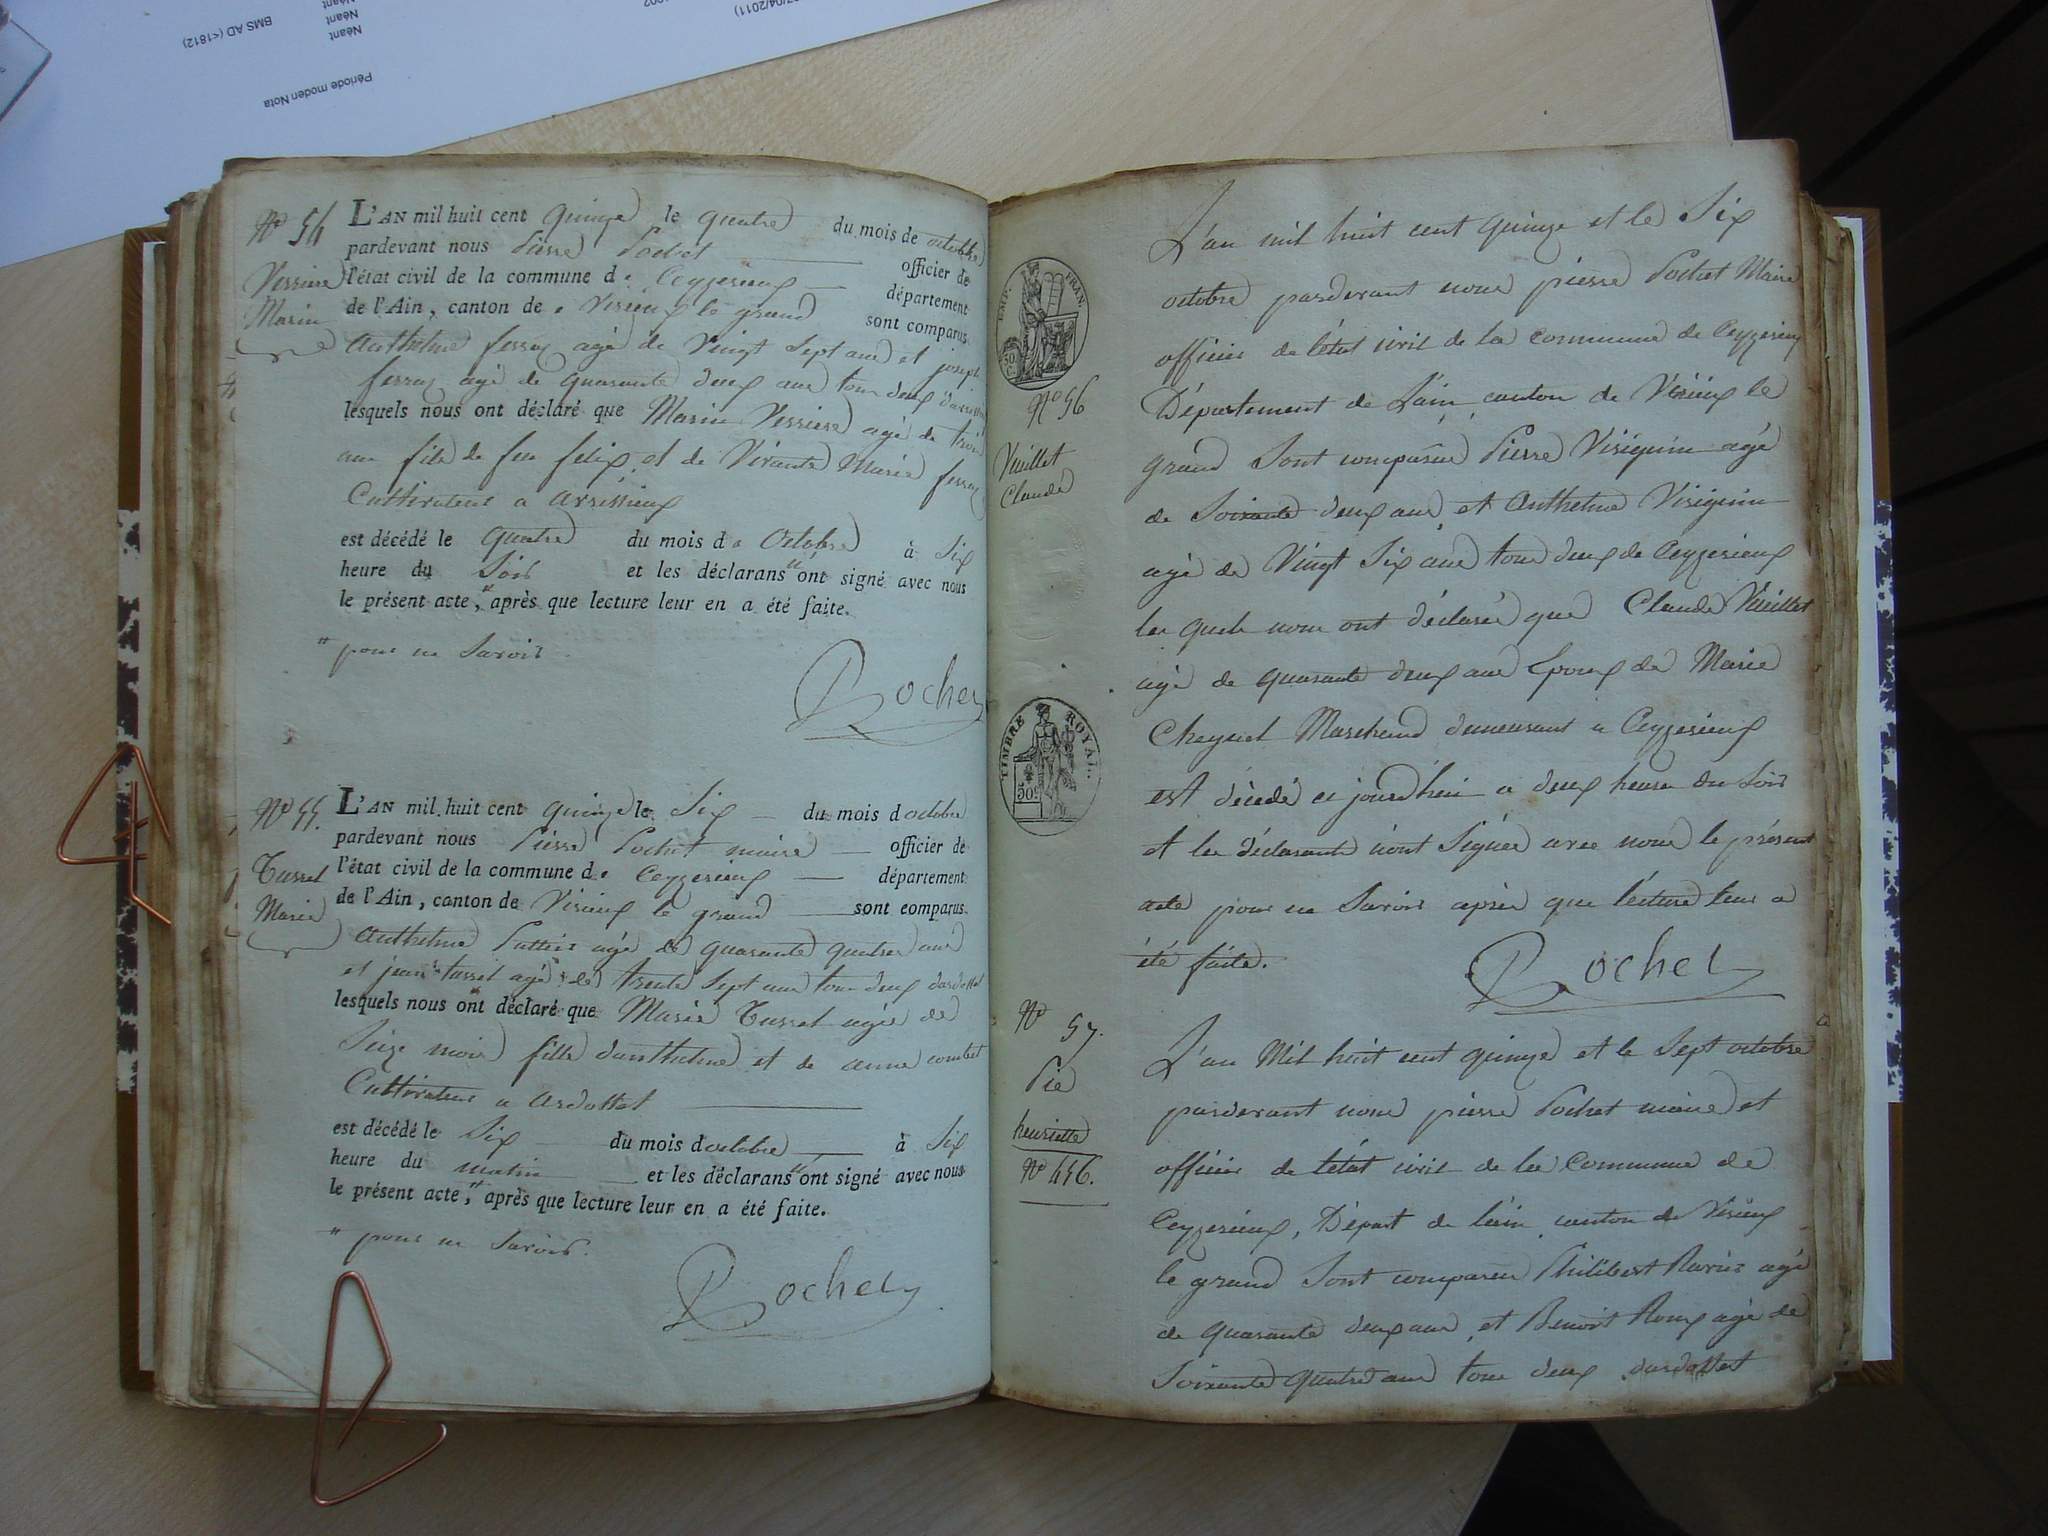 Néant
Néant
Néant
BMS AD (<1812)
Période moden Nota
Nº 54
Verriere
Marin
L'AN mil huit cent quinze le quatre du mois de octobre
pardevant nous Pierre Pochet officier de
l'état civil de la commune de Ceyzerieux département
de l'Ain, canton de Virieux le grand sont comparus
Anthelme ferraz agé de Vingt Sept ans et joseph
ferraz agé de quarante deux ans tous deux
lesquels nous ont déclaré que Marin Verriere agé de trois
ans fils de feu felix et de Vivante Marie ferraz
Cultivateur a avrissieux
est décédé le quatre du mois de Octobre à Six
heure du Soir et les déclarans n'ont signé avec nous
le présent acte, " après que lecture leur en a été faite.
" pour ne Savoir
Pochet
Nº 55.
Tussel
Marie
L'AN mil huit cent quinze le Six du mois d octobre
pardevant nous Pierre Pochet maire officier de
l'état civil de la commune de Ceyzerieux département
de l'Ain, canton de Virieux le grand sont comparus
Anthelme agé de quarante quatre ans
et jean tussel agé de trente Sept ans tous deux dardosset
lesquels nous ont déclaré que Marie Tussel agée de
Seize mois fille danthelme et de anne combet
Cultivateur a Ardosset
est décédé le Six du mois d octobre à Six
heure du matin et les déclarans n'ont signé avec nous
le présent acte, " après que lecture leur en a été faite.
" pour ne Savoir.
Pochet
EMP. FRAN.
Nº 56
Vuillet
Claude
TIMBRE ROYAL.
L'an mil huit cent quinze et le Six
octobre pardevant nous pierre Pochet Maire
officier de l'état civil de la commune de Ceyzerieux
Département de L'ain canton de Virieux le
grand Sont comparus Pierre agé
de Soixante deux ans et Anthelme
agé de Vingt Six ans tous deux de Ceyzerieux
les quels nous ont déclaré que Claude Vuillet
agé de quarante deux ans Epoux de Marie
Cheynel Marchand demeurant a Ceyzerieux
est décédé ce jourd'hui a deux heures du Soir
et les déclarants n'ont Signés avec nous le présent
acte pour ne Savoir après que lecture leur a
été faite.
Pochet
Nº 57.
Pie
henriette
Nº 456.
L'an Mil huit cent quinze et le Sept octobre
pardevant nous pierre Pochet maire et
officier de l'état civil de la Commune de
Ceyzerieux, Départ de lain canton de Virieux
le grand Sont comparus Philibert Ravier agé
de quarante deux ans et Benoit Roux agé de
Soixante quatre ans tous deux dardosset